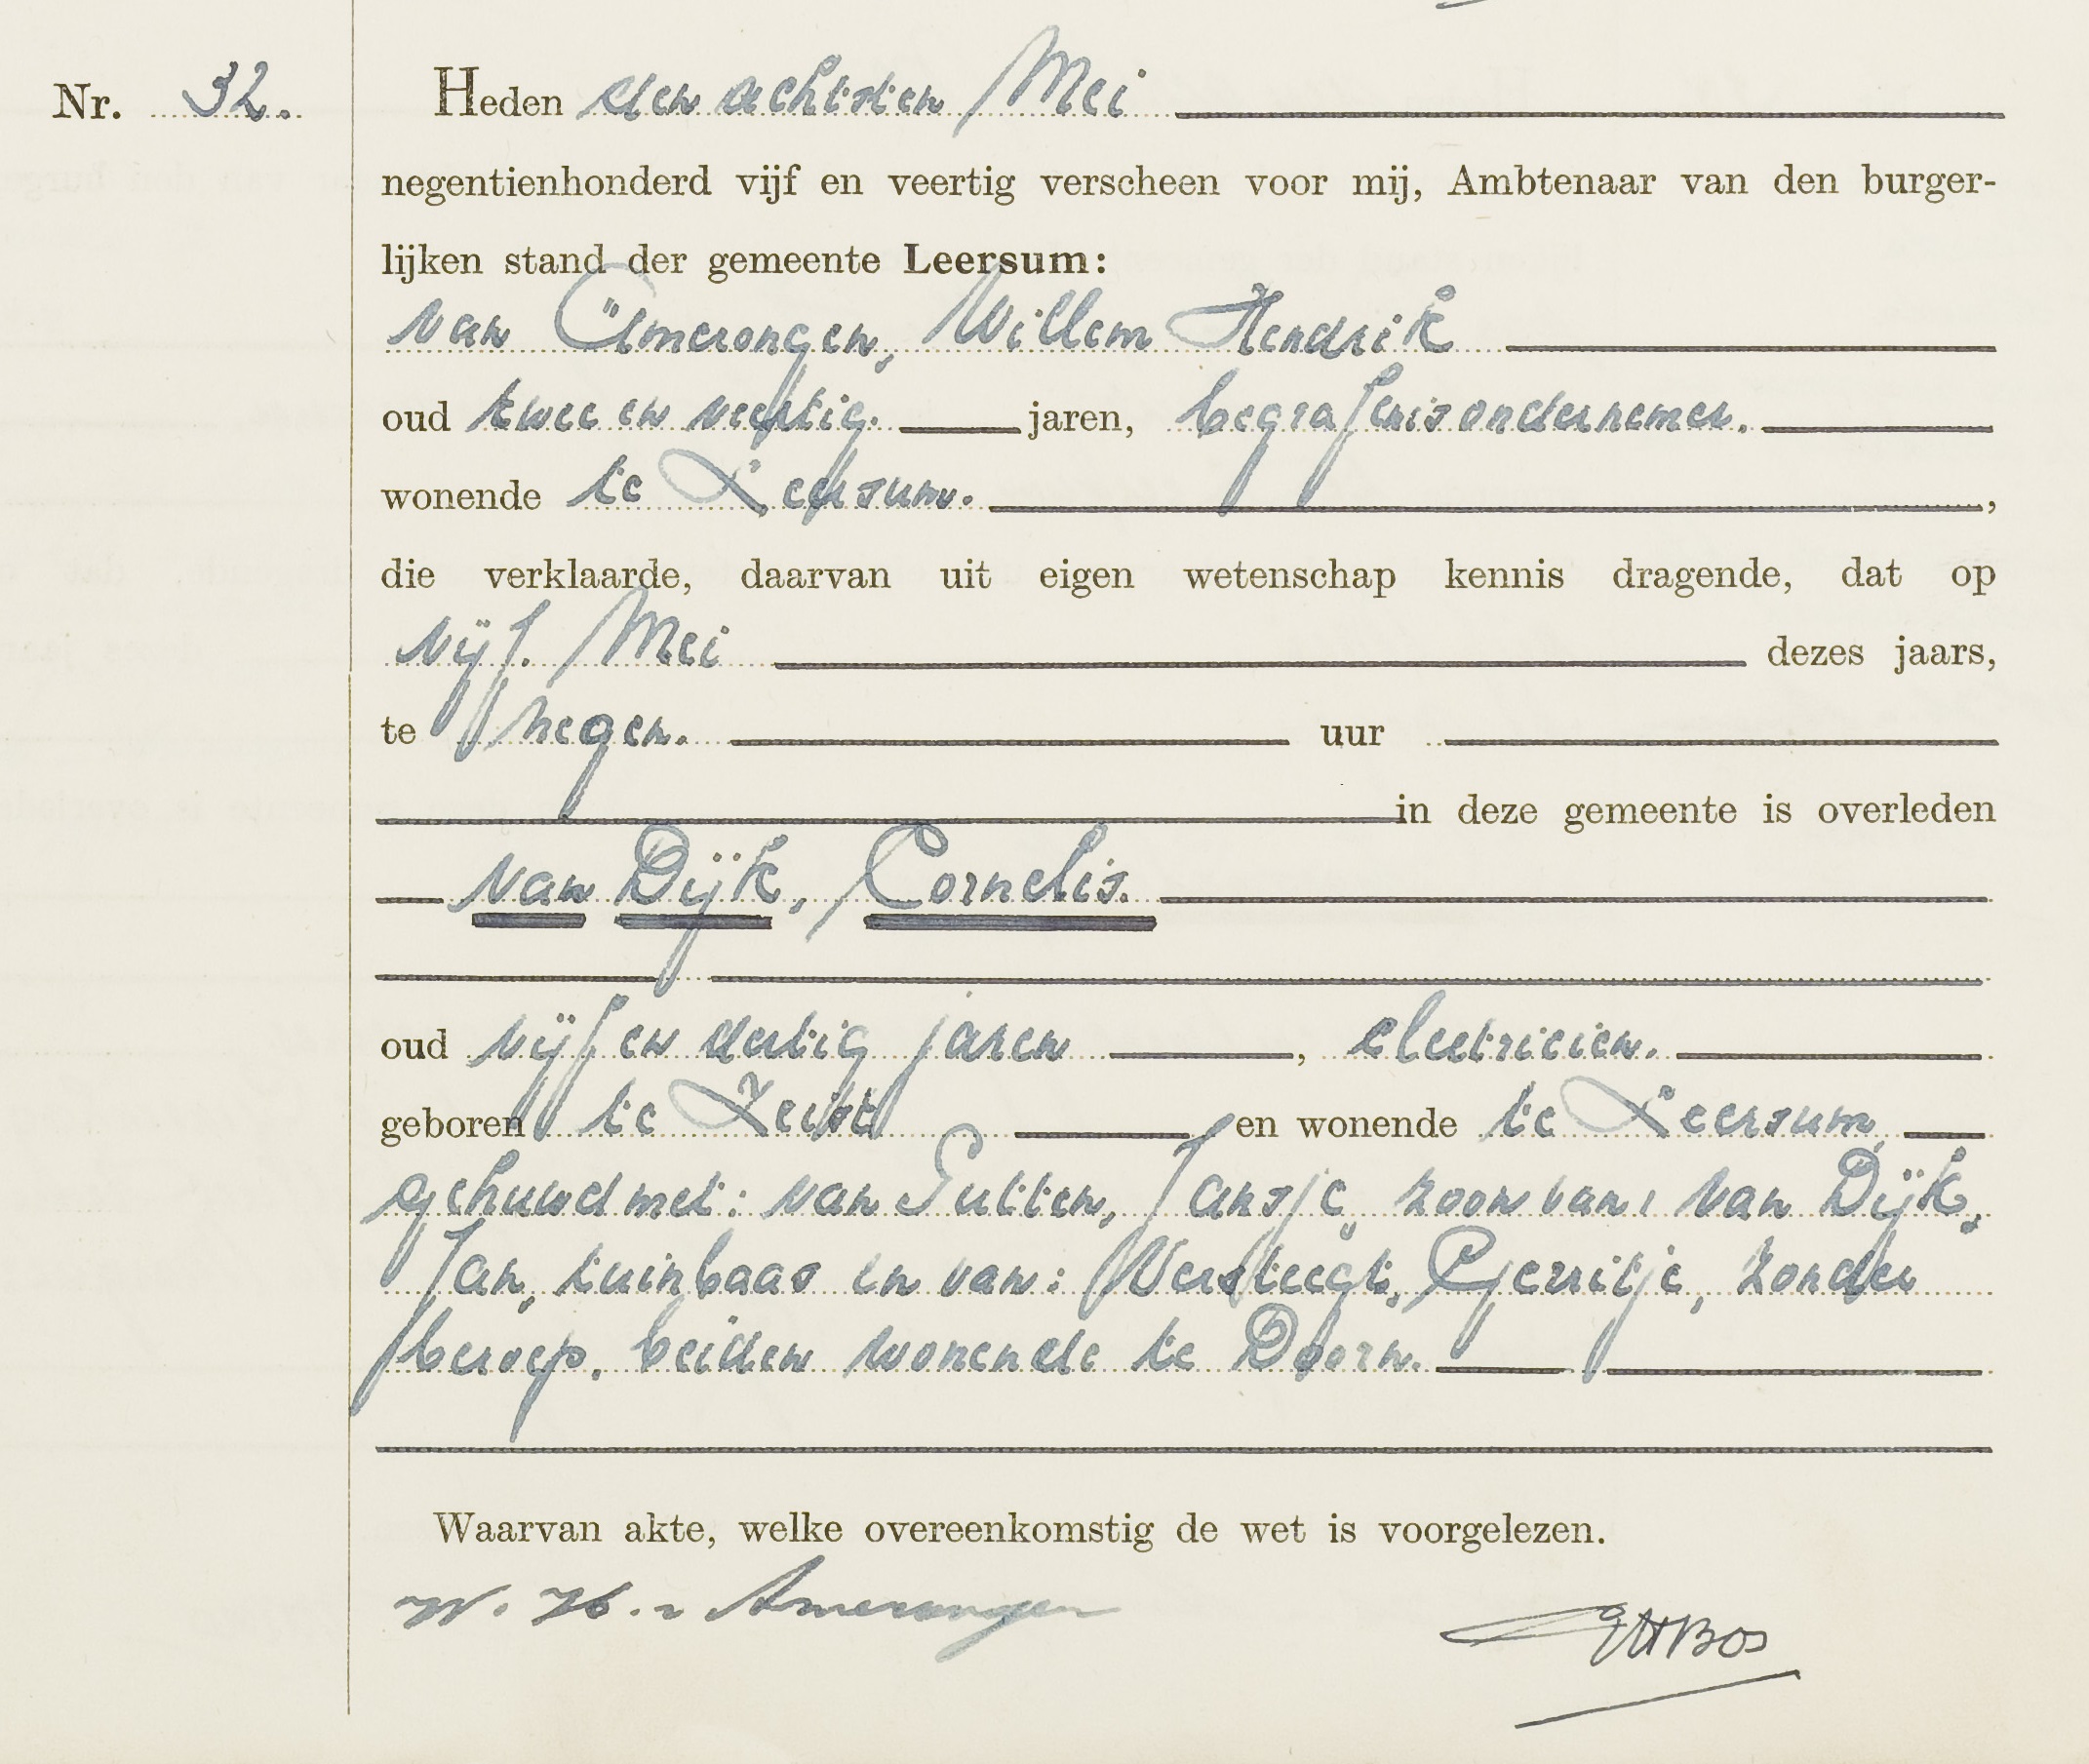 Nr. 32.
Heden den achtsten Mei
negentienhonderd vijf en veertig verscheen voor mij, Ambtenaar van den burger-
lijken stand der gemeente Leersum:
van Amerongen, Willem Hendrik
oud twee en veertig. jaren, begrafenisondernemer.
wonende te Leersum. ,
die verklaarde, daarvan uit eigen wetenschap kennis dragende, dat op
vijf. Mei dezes jaars,
te negen. uur
in deze gemeente is overleden
van Dijk, Cornelis.
oud vijf en dertig jaren , electricien.
geboren te Zeist en wonende te Leersum,
gehuwd met: van Sutten, Jansje, zoon van: van Dijk,
Jan, tuinbaas en van: Versteegt, Gerritje, zonder
beroep, beiden wonende te Doorn.
Waarvan akte, welke overeenkomstig de wet is voorgelezen.
W. H. v Amerongen
Bos